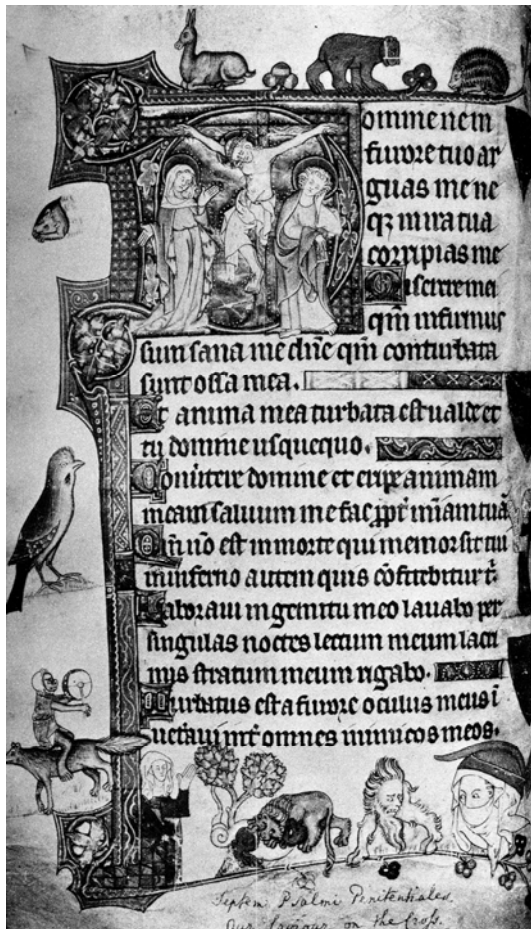 omine ne in
furore tuo ar
guas me ne
qȝ in ira tua
corripias me
Miserere mei
qm̄ infirmus
sum sana me dn̄e qm̄ conturbata
sunt ossa mea.
Et anima mea turbata est ualde et
tu domine usquequo.
Conuertere domine et eripe animam
meam saluum me fac ꝓpt̄ mīam tuā
Qm̄ nō est in morte qui memor sit tui
in inferno autem quis cōfitebitur t̄.
Laboraui in gemitu meo lauabo per
singulas noctes lectum meum lacri
mis stratum meum rigabo.
Turbatus est a furore oculus meus ī
ueteraui int̄ omnes inimicos meos.
Septem Psalmi Penitentiales.
Our Saviour on the Cross.